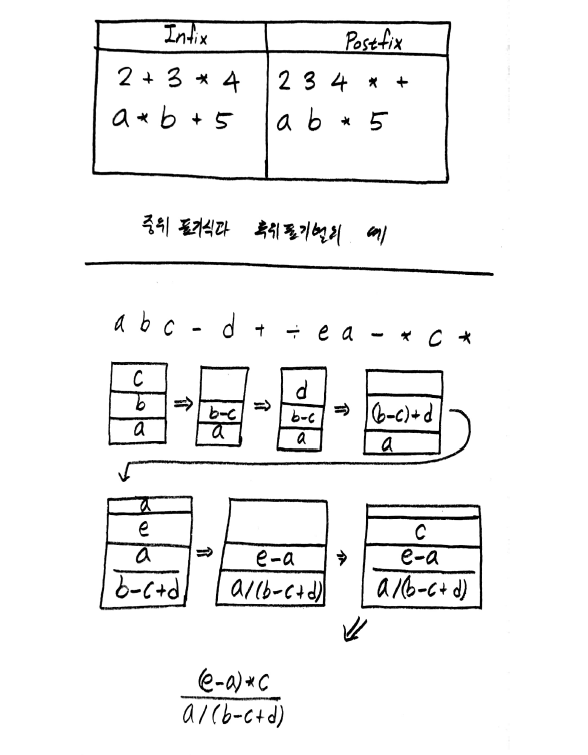 Infix Postfix
2 + 3 * 4 2 3 4 * +
a * b + 5 a b * 5
중위 표기식과 후위표기법의 예
a b c - d + ÷ e a - * c *
c d
b b-c b-c (b-c)+d
a a a a
⇒ ⇒ ⇒
a
e c
a e-a e-a
b-c+d a/(b-c+d) a/(b-c+d)
⇒ ⇒
(e-a)*c
a/(b-c+d)